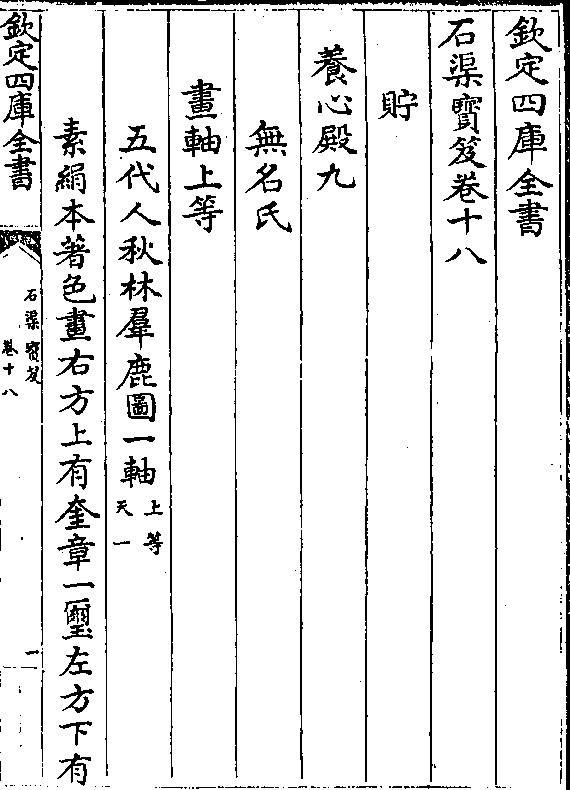 欽定四庫全書
石渠寳笈卷十八
貯
養心殿九
無名氏
畫軸上等
五代人秋林羣鹿圖一軸上等天一
素絹本著色畫右方上有奎章一璽左方下有
欽定四庫全書
石渠寳笈
卷十八
一